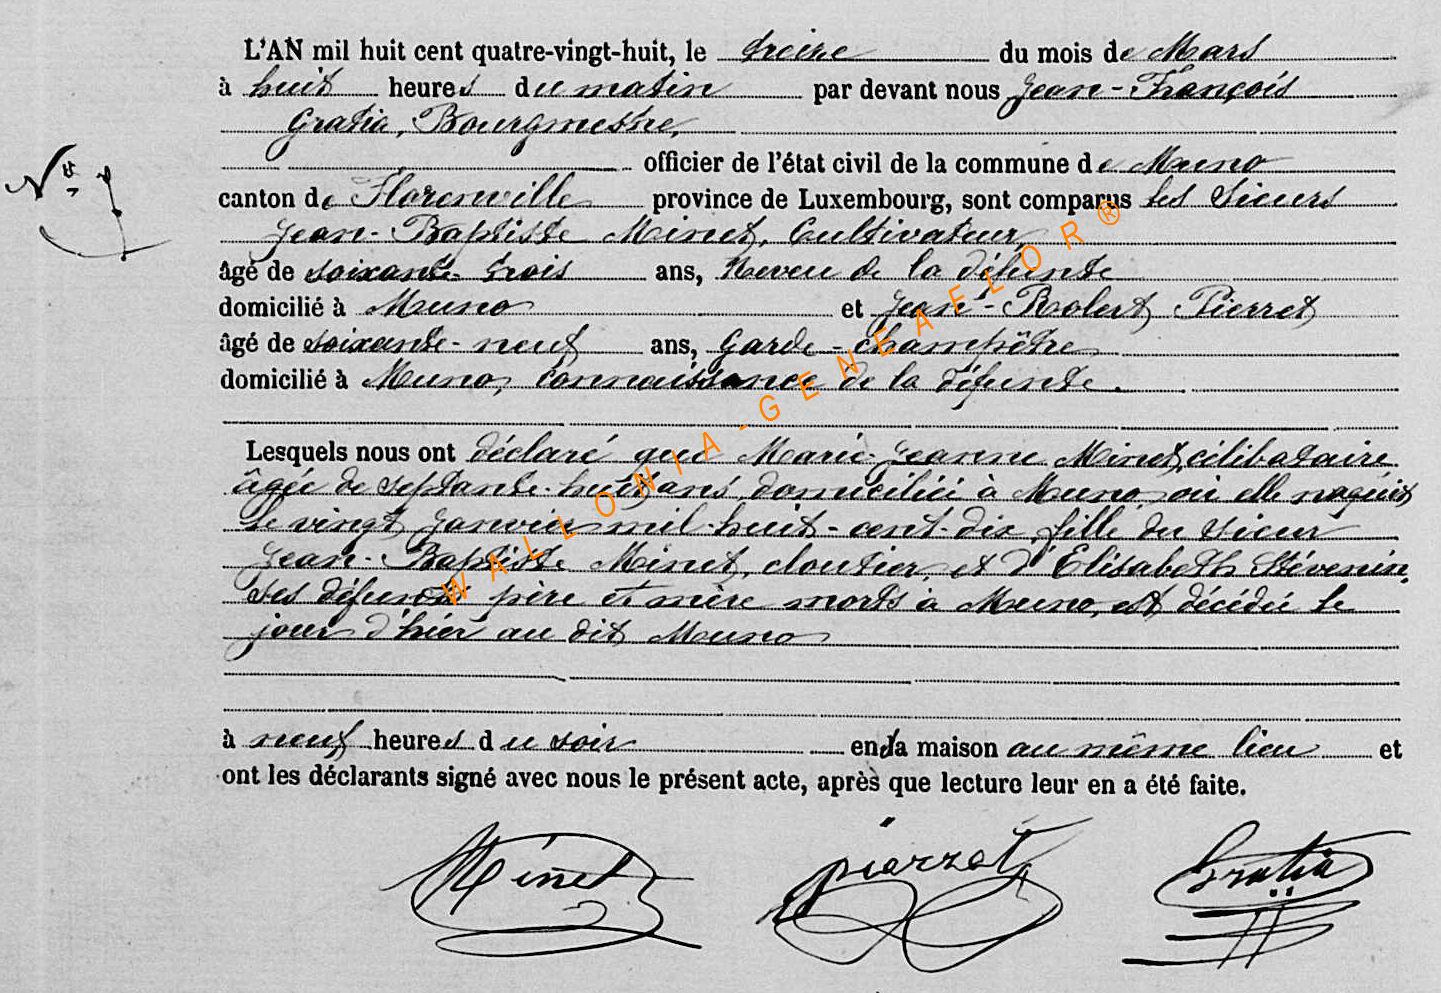 L'AN mil huit cent quatre-vingt-huit, le treize du mois de Mars
à huit heures du matin par devant nous Jean-François
Gratia, Bourgmestre,
officier de l'état civil de la commune de Muno
canton de Florenville province de Luxembourg, sont comparus les Sieurs
Jean-Baptiste Minet, Cultivateur,
âgé de soixante-trois ans, Neveu de la défunte
domicilié à Muno et Jean-Robert Pierret
âgé de soixante-neuf ans, Garde-champêtre
domicilié à Muno, connaissance de la défunte.
Lesquels nous ont déclaré que Marie-Jeanne Minet, célibataire
âgée de septante-huit ans, domiciliée à Muno où elle naquit
le vingt Janvier mil-huit-cent-dix, fille du sieur
Jean-Baptiste Minet, cloutier, et d'Elisabeth Stévenin,
ses défunts père et mère morts à Muno, est décédée le
jour d'hier au dit Muno
à neuf heures du soir en la maison au même lieu et
ont les déclarants signé avec nous le présent acte, après que lecture leur en a été faite.
Minet Pierret Gratia
WALLONIA-GENEAELOR®